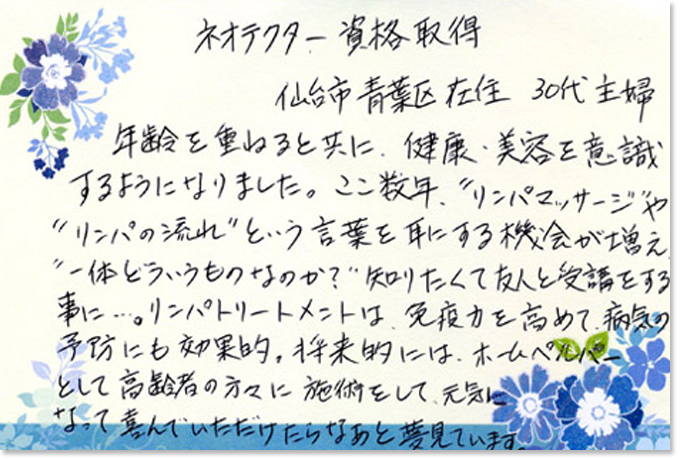 ネオテクター資格取得
仙台市青葉区在住 30代主婦
年齢を重ねると共に、健康・美容を意識
するようになりました。ここ数年、"リンパマッサージ"や
"リンパの流れ"という言葉を耳にする機会が増え、
"一体どういうものなのか?"知りたくて友人と受講をする
事に…。リンパトリートメントは、免疫力を高めて、病気の
予防にも効果的。将来的には、ホームヘルパー
として高齢者の方々に施術をして、元気に
なって喜んでいただけたらなあと夢見ています。